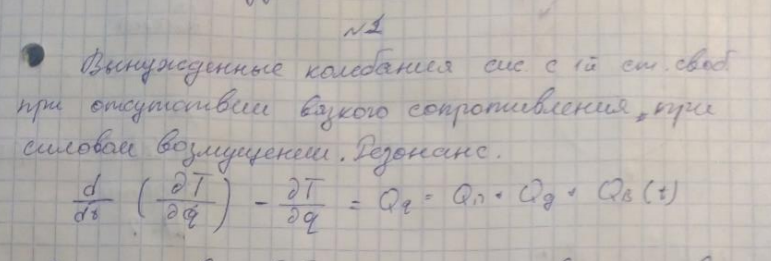 №1
Вынужденные колебания сис. с 1й ст. своб
при отсутствии вязкого сопротивления, при
силовом возмущении. Резонанс.
d/dt (∂T/∂q̇) - ∂T/∂q = Qq = Qп + Qд + Qв(t)